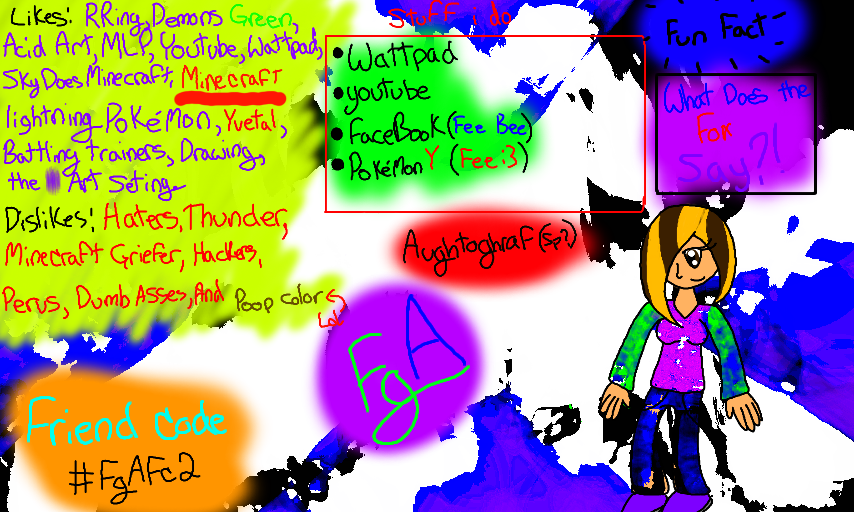 Likes: RRing, Demons Green,
Acid Art, MLP, Youtube, Wattpad,
SkyDoesMinecraft, Minecraft
lightning Pokémon, Yvetal,
Battling trainers, Drawing,
the Art Seting
Dislikes: Haters, Thunder,
Minecraft Griefer, Hackers,
Pervs, Dumb Asses, And Poop color
Lol
Stuff i do
• Wattpad
• youtube
• FaceBook (Fee Bee)
• Pokémon Y (Fee :3)
Fun Fact
What Does the
For
Say?!
Aughtoghraf (sp?)
FgA
Friend code
#FgAFc2